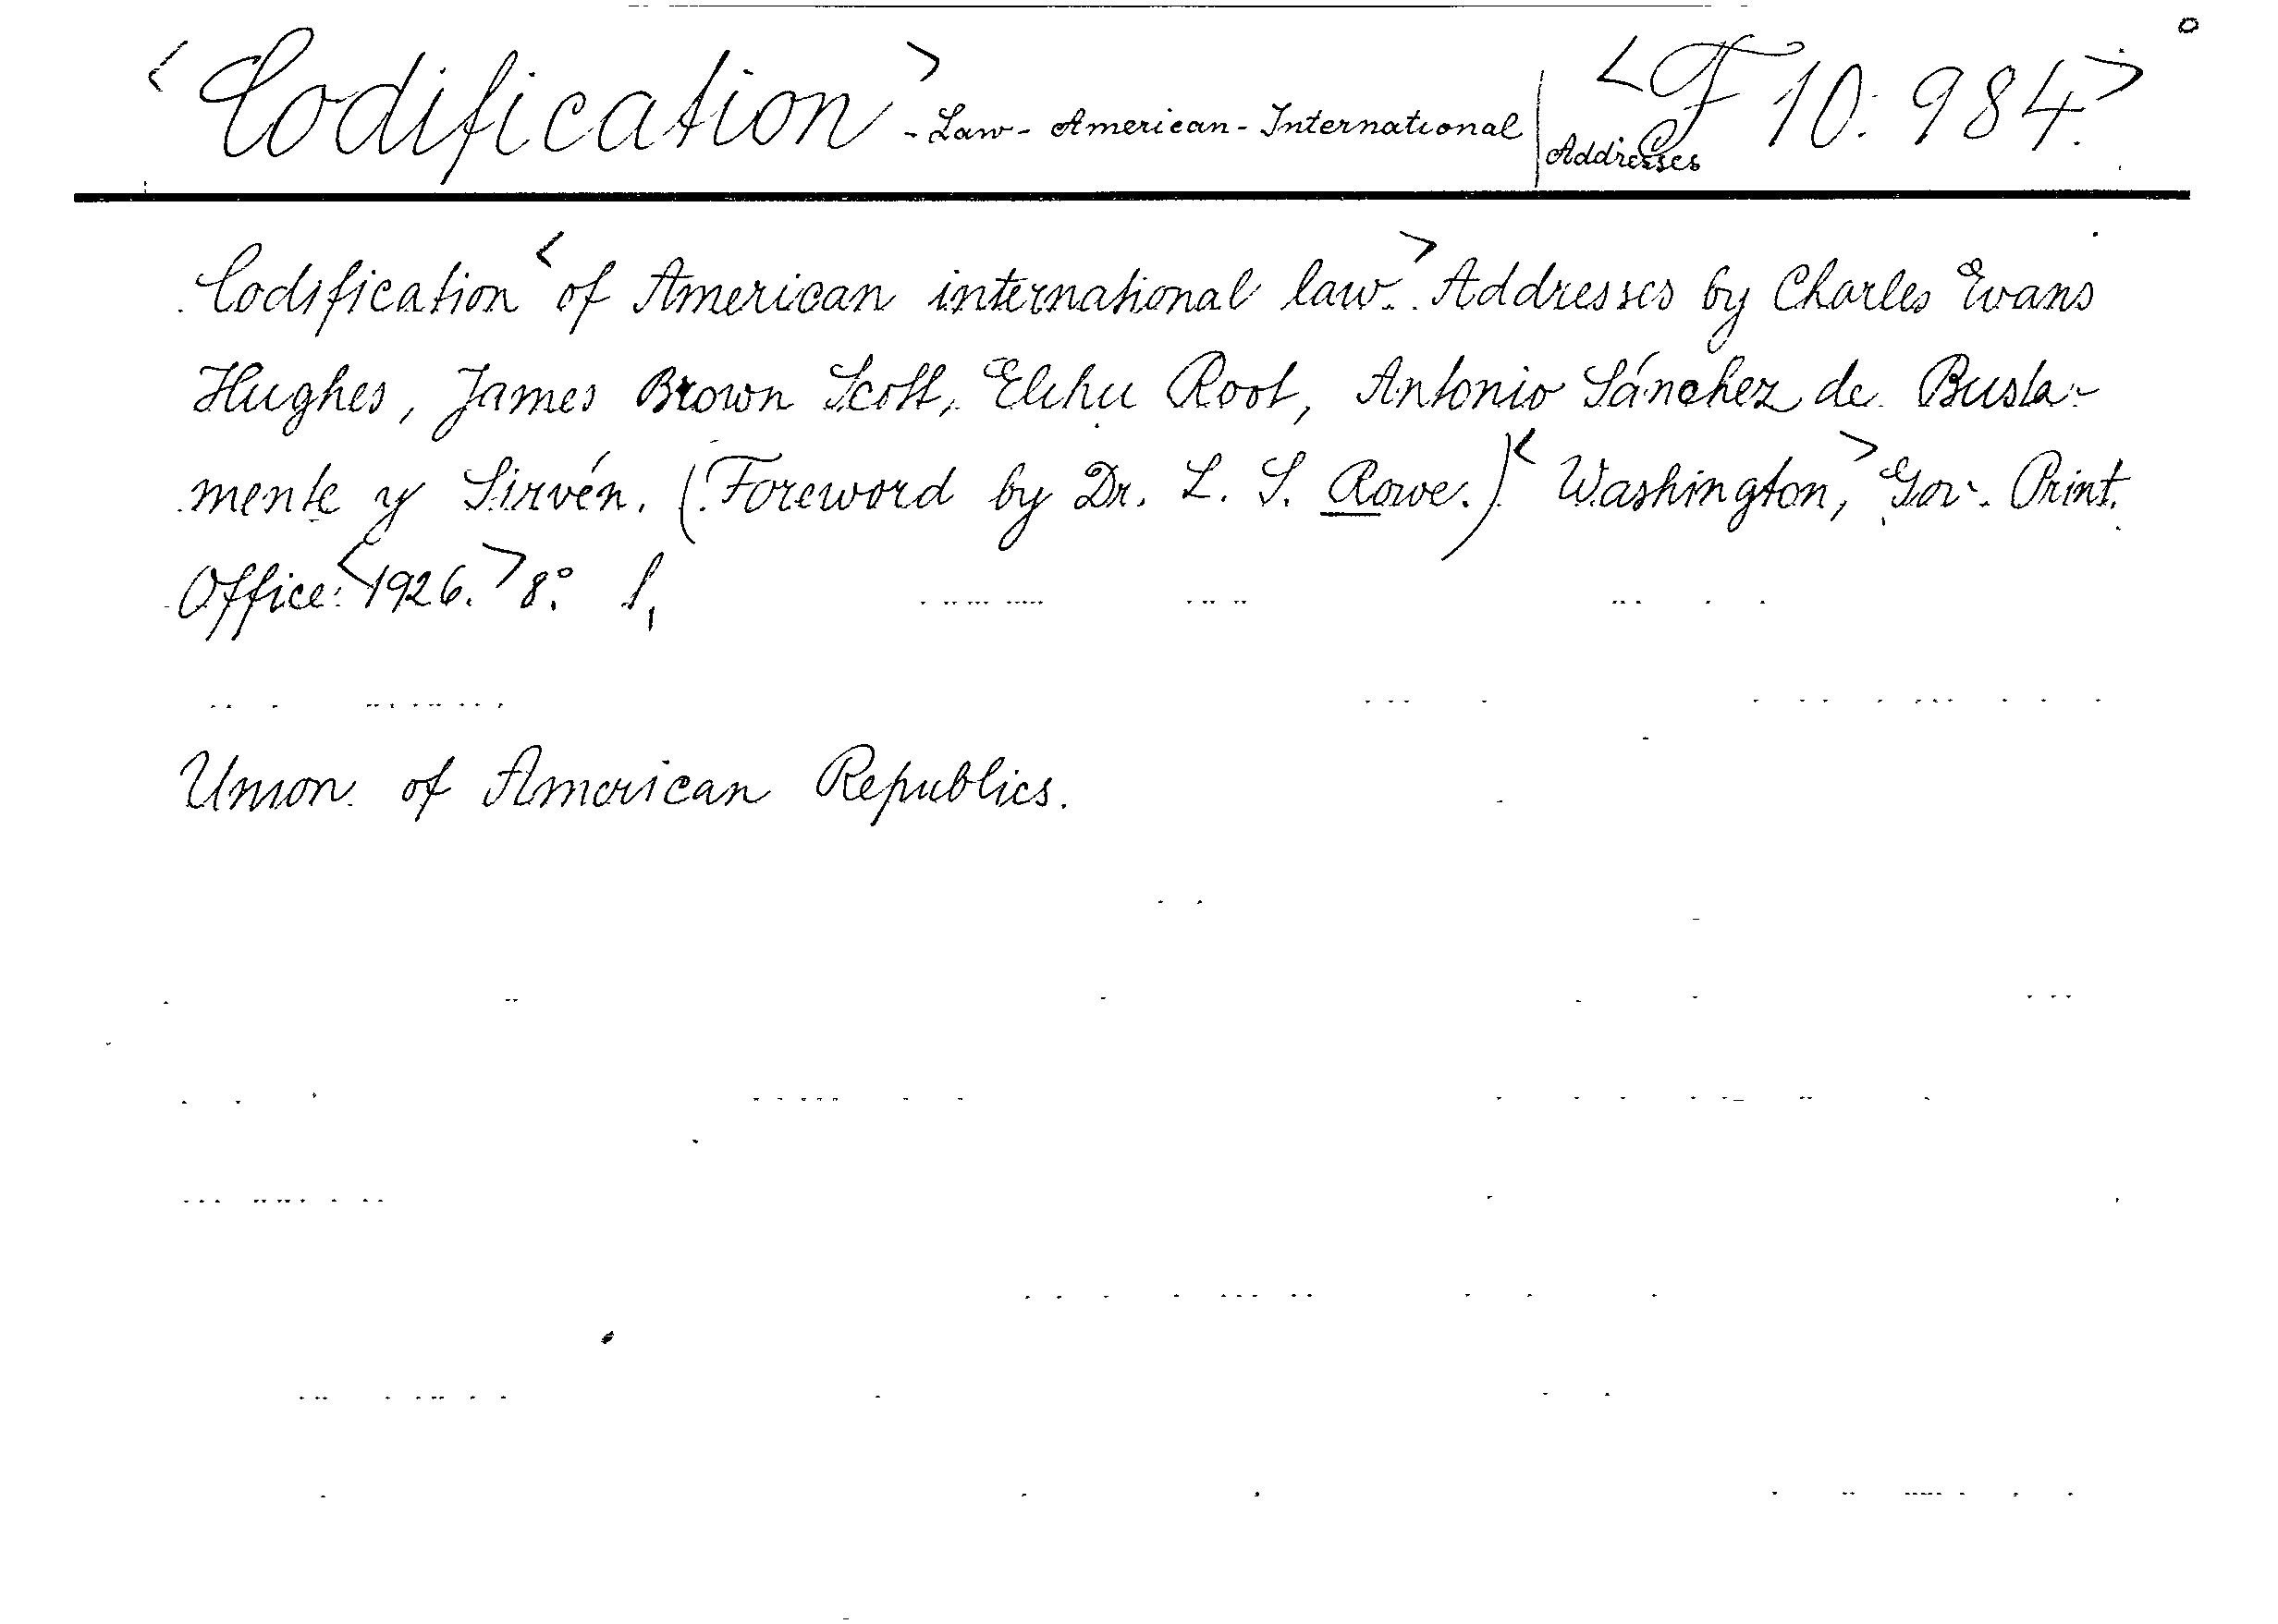 <Codification> - Law - American - International | Addresses <F 10: 984.>
Codification <of American international law.> Addresses by Charles Evans
Hughes, James Brown Scott, Elihu Root, Antonio Sánchez de Busta-
mente y Sirvén. (Foreword by Dr. L. S. Rowe.) <Washington,> Gov. Print.
Office: <1926.> 8°.
Union of American Republics.